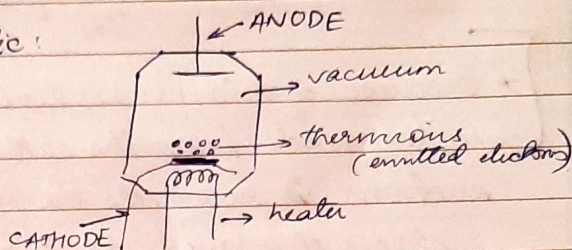 ic:
ANODE
vacuum
thermions
(emitted electrons)
heater
CATHODE